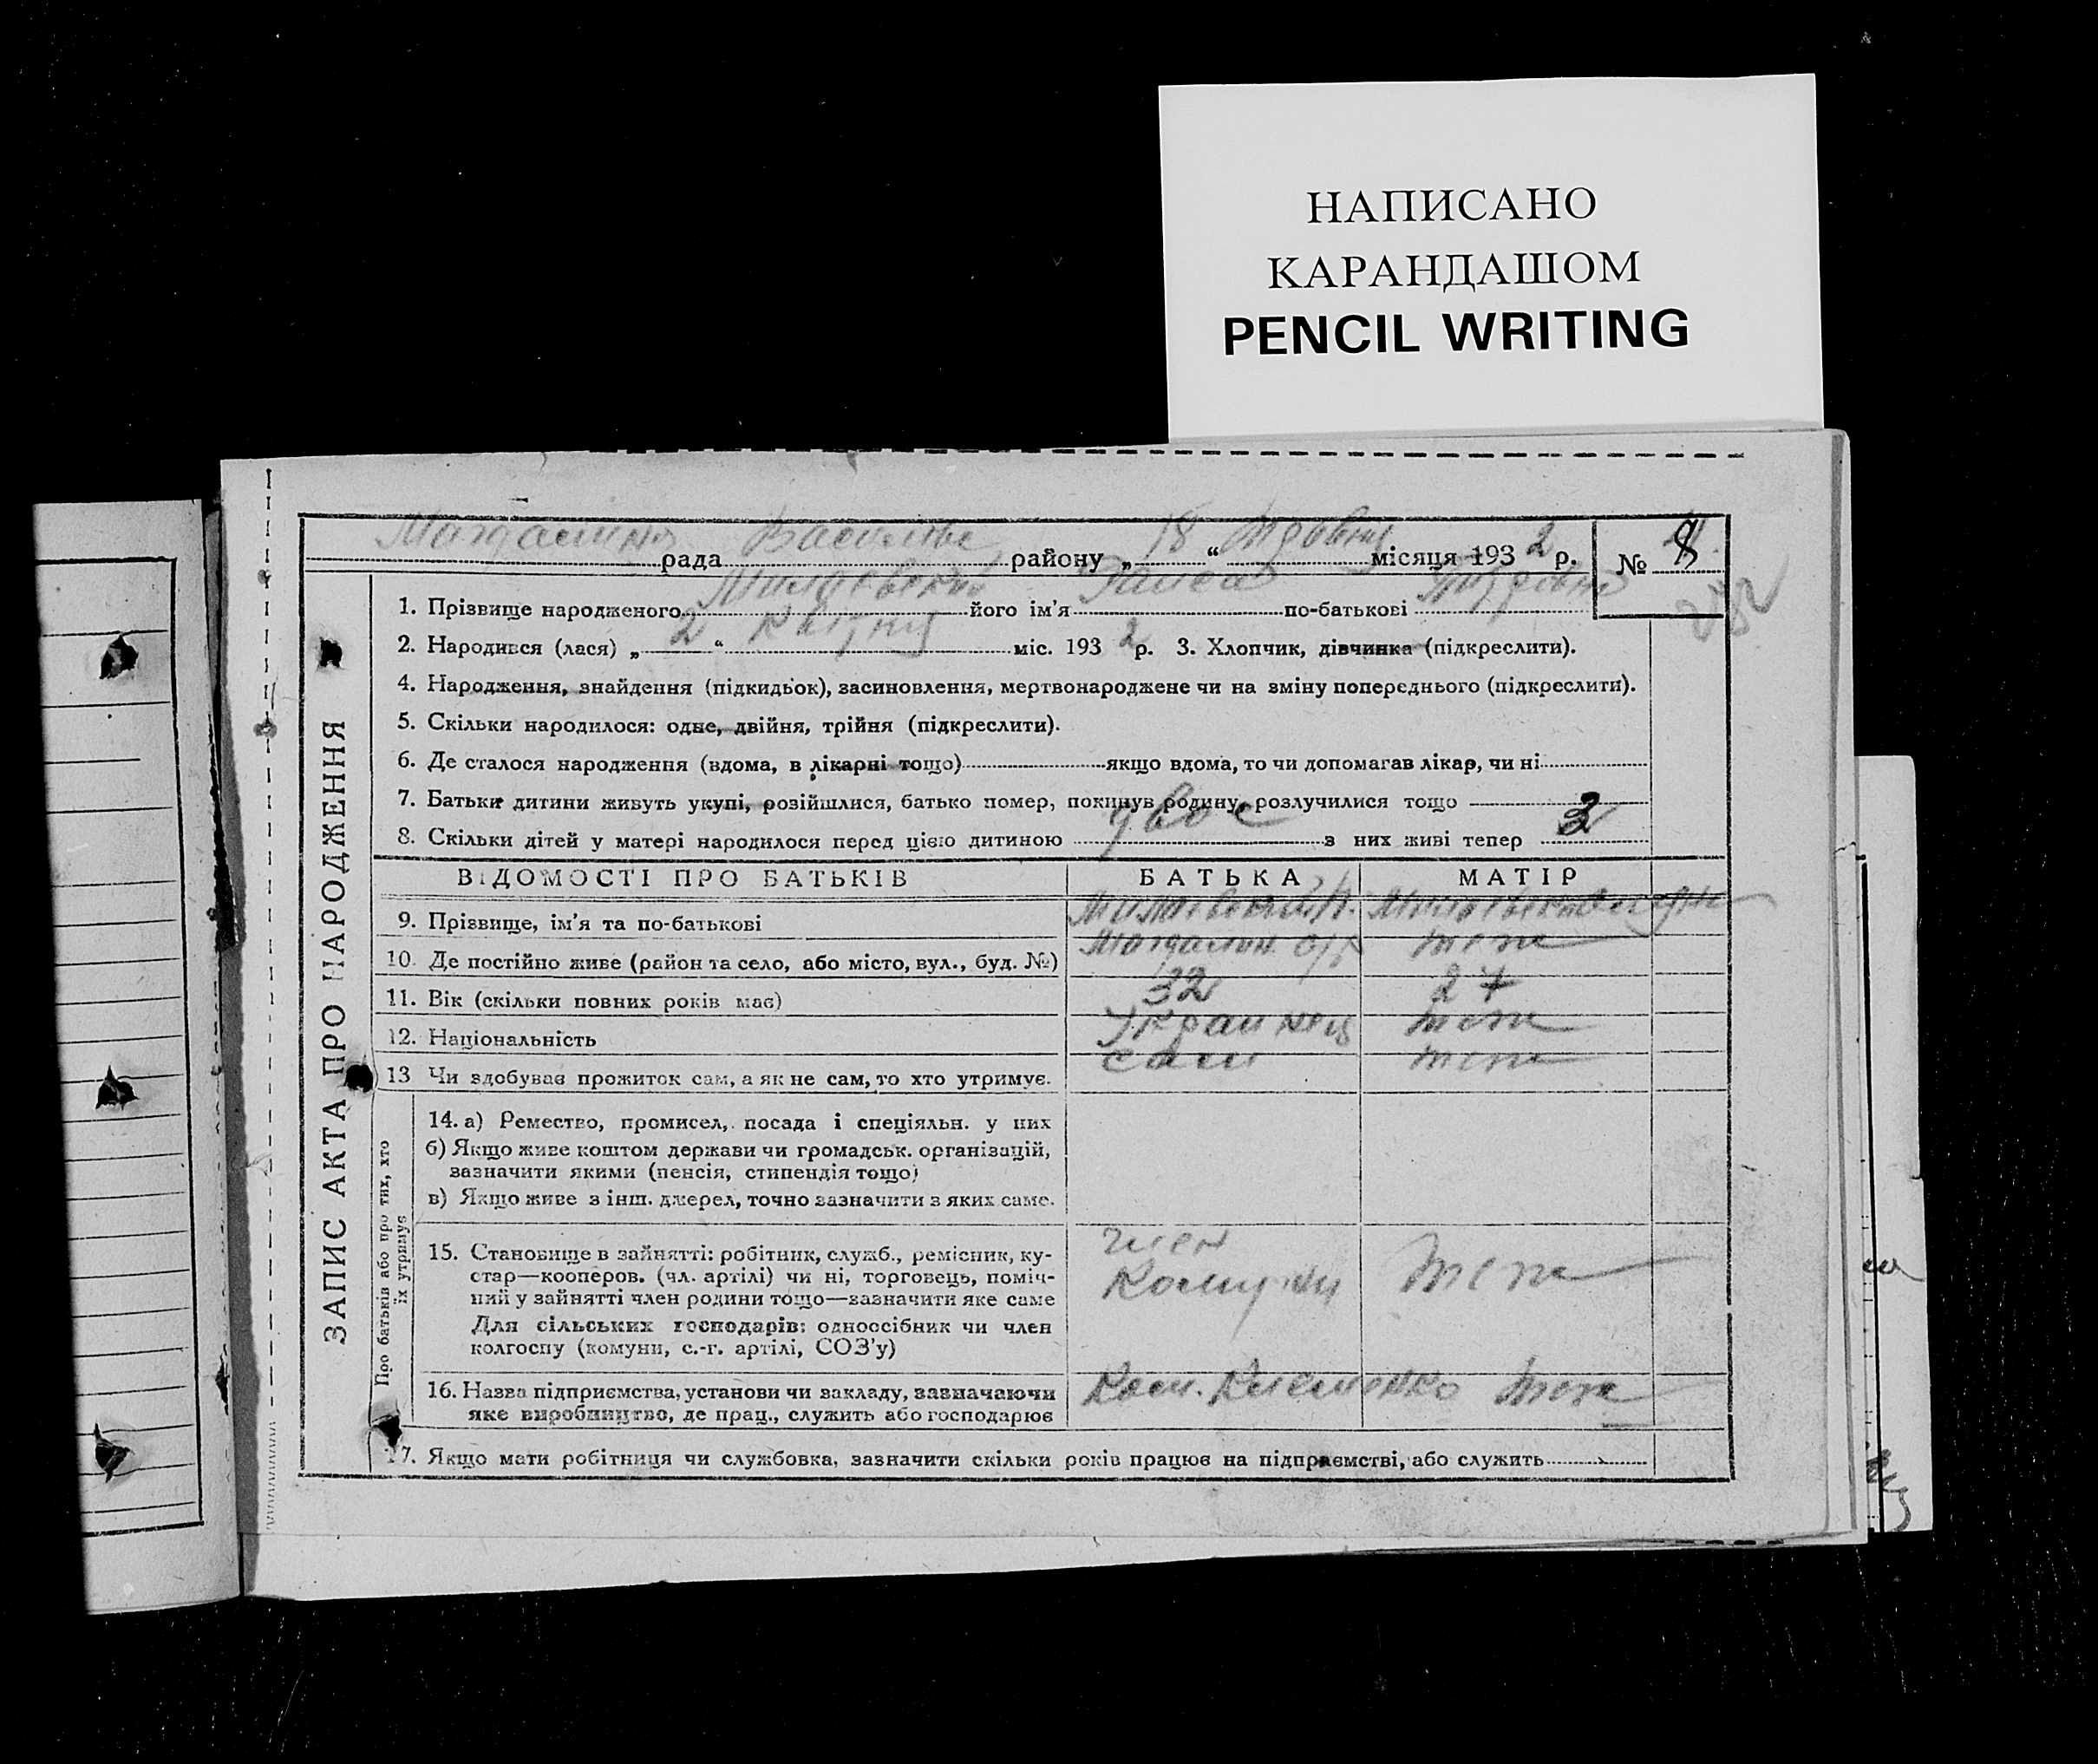 НАПИСАНО
КАРАНДАШОМ
PENCIL WRITING
рада району „18“ місяця 1932 р. № 8
1. Прізвище народженого його ім'я Раиса по-батькові
2. Народився (лася) „2“ Квітня міс. 1932 р. 3. Хлопчик, дівчинка (підкреслити).
4. Народження, знайдення (підкидьок), засиновлення, мертвонароджене чи на зміну попереднього (підкреслити).
5. Скільки народилося: одне, двійня, трійня (підкреслити).
6. Де сталося народження (вдома, в лікарні тощо) якщо вдома, то чи допомагав лікар, чи ні
7. Батьки дитини живуть укупі, розійшлися, батько помер, покинув родину, розлучилися тощо
8. Скільки дітей у матері народилося перед цією дитиною двое з них живі тепер
ВІДОМОСТІ ПРО БАТЬКІВ БАТЬКА МАТІР
9. Прізвище, ім'я та по-батькові
10. Де постійно живе (район та село, або місто, вул., буд. №) теж
11. Вік (скільки повних років має) 32 27
12. Національність Украинец теж
13 Чи здобуває прожиток сам, а як не сам, то хто утримує. сам теж
14. а) Ремество, промисел, посада і спеціяльн. у них
б) Якщо живе коштом держави чи громадськ. організацій,
зазначити якими (пенсія, стипендія тощо)
в) Якщо живе з інш. джерел, точно зазначити з яких саме.
15. Становище в зайнятті: робітник, служб., ремісник, ку-
стар—кооперов. (чл. артілі) чи ні, торговець, поміч-
ний у зайнятті член родини тощо—зазначити яке саме
Для сільських господарів: одноосібник чи член
колгоспу (комуни, с.-г. артілі, СОЗ'у)
член
Комуни теж
16. Назва підприємства, установи чи закладу, зазначаючи
яке виробництво, де прац., служить або господарює
Ком. теж
17. Якщо мати робітниця чи службовка, зазначити скільки років працює на підприємстві, або служить
ЗАПИС АКТА ПРО НАРОДЖЕННЯ
Про батьків або про тих, хто
їх утримує